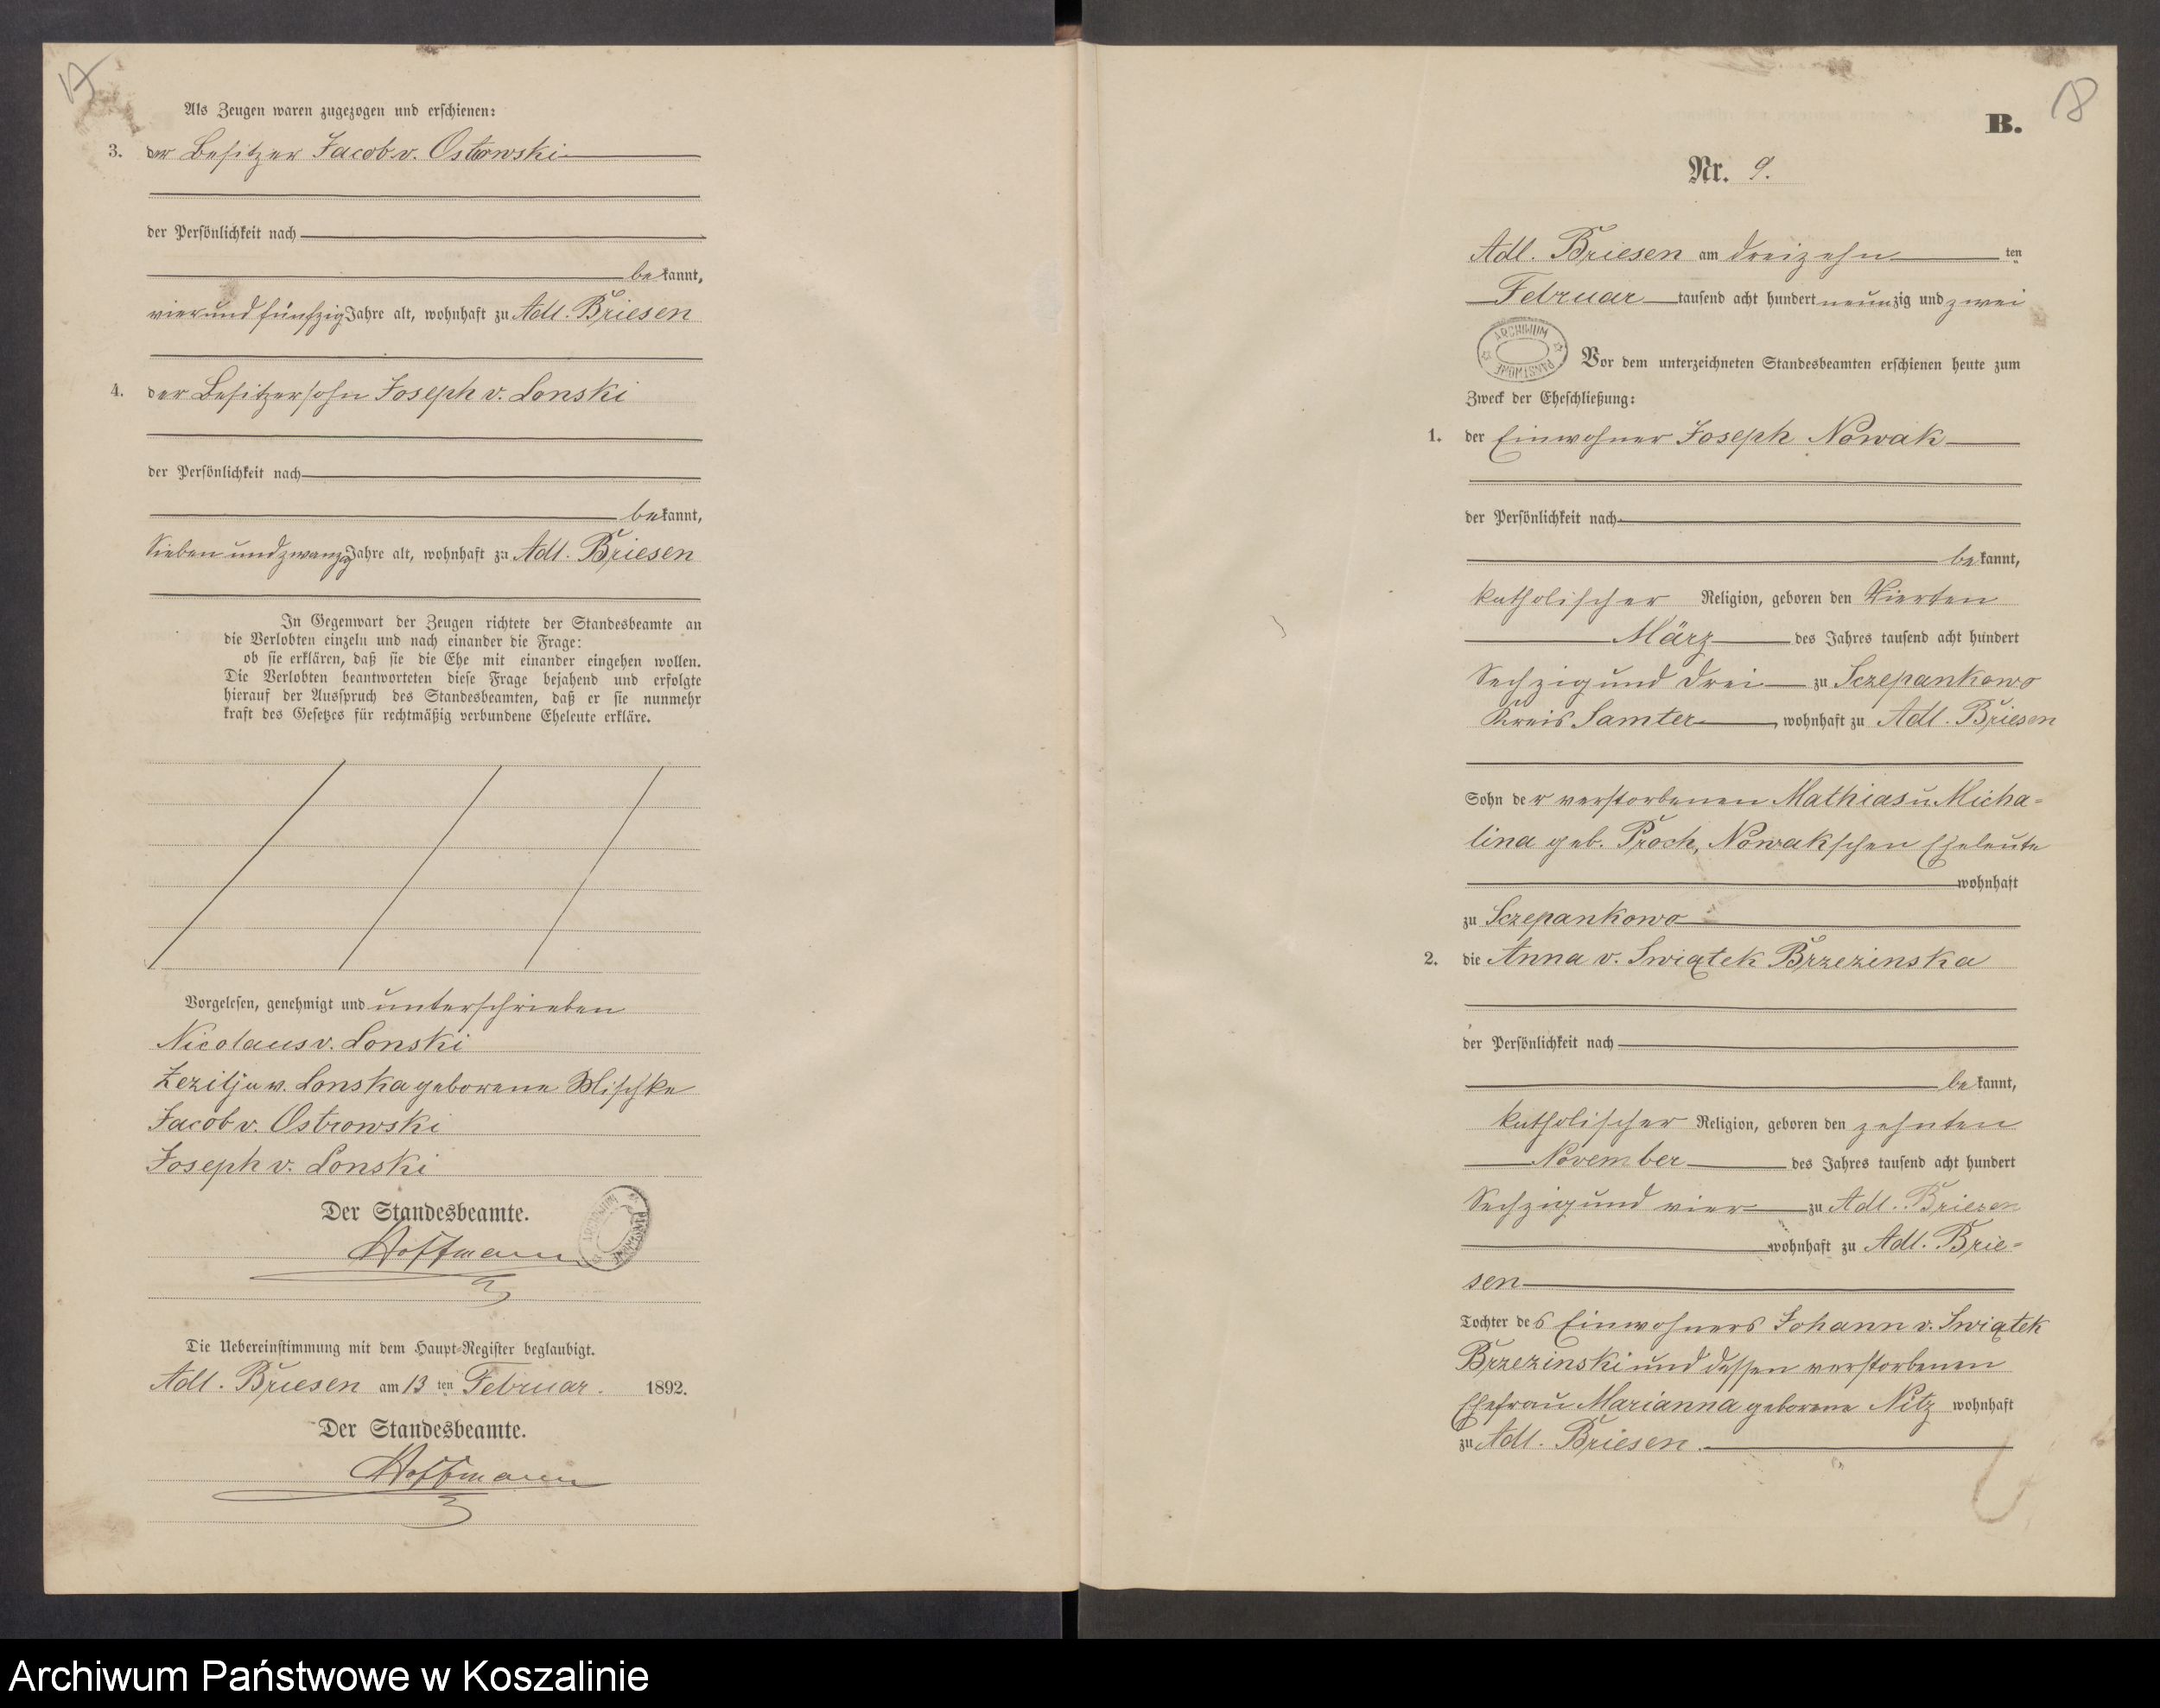 17
Als Zeugen waren zugezogen und erschienen:
3. der Besitzer Jacob v. Ostrowski
der Persönlichkeit nach
bekannt,
vierundfünfzig Jahre alt, wohnhaft zu Adl. Briesen
4. der Besitzersohn Joseph v. Lonski
der Persönlichkeit nach
bekannt,
Sieben und zwanzig Jahre alt, wohnhaft zu Adl. Briesen
In Gegenwart der Zeugen richtete der Standesbeamte an
die Verlobten einzeln und nach einander die Frage:
ob sie erklären, daß sie die Ehe mit einander eingehen wollen.
Die Verlobten beantworteten diese Frage bejahend und erfolgte
hierauf der Ausspruch des Standesbeamten, daß er sie nunmehr
kraft des Gesetzes für rechtmäßig verbundene Eheleute erkläre.
Vorgelesen, genehmigt und unterschrieben
Nicolaus v. Lonski
v. Lonska geborene
Jacob v. Ostrowski
Joseph v. Lonski
Der Standesbeamte.
Hoffmann
Die Uebereinstimmung mit dem Haupt-Register beglaubigt.
Adl. Briesen am 13 ten Februar. 1892.
Der Standesbeamte.
Hoffmann
18
B.
Nr. 9.
Adl. Briesen am dreizehn ten
Februar tausend acht hundert neunzig und zwei
ARCHIWUM PAŃSTWOWE
Vor dem unterzeichneten Standesbeamten erschienen heute zum
Zweck der Eheschließung:
1. der Einwohner Joseph Nowak
der Persönlichkeit nach
bekannt,
katholischer Religion, geboren den Vierten
März des Jahres tausend acht hundert
Sechzig und drei zu Sczepankowo
Kreis Samter, wohnhaft zu Adl. Briesen
Sohn der verstorbenen Mathias u. Micha-
lina geb. Proch, Nowakschen Eheleute
wohnhaft
zu Sczepankowo
2. die Anna v. Swiątek Brzezinska
der Persönlichkeit nach
bekannt,
katholischer Religion, geboren den zehnten
November des Jahres tausend acht hundert
Sechzig und vier zu Adl. Briesen
wohnhaft zu Adl. Brie-
sen
Tochter des Einwohners Johann v. Swiątek
Brzezinski und dessen verstorbenen
Ehefrau Marianna geborene Nitz wohnhaft
zu Adl. Briesen.
Archiwum Państwowe w Koszalinie